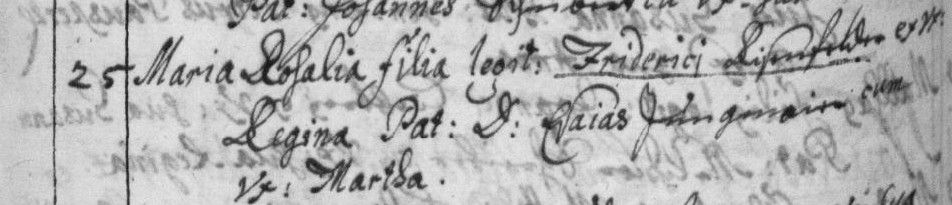 Pat: Johannes
25 Maria Rosalia filia legit: Friderici Risenfelder ex Vx:
Regina Pat: D: Esaias Jungmair cum
Vx: Martha.